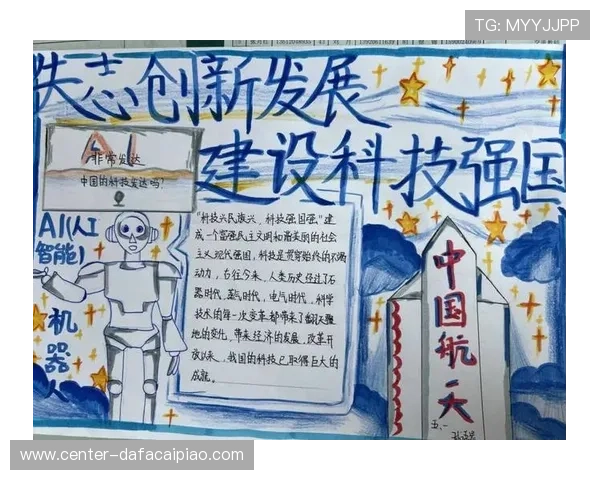 TG: MYYJJPP
矢志创新发展
建设科技强国
AI
非常发达
中国的科技发达吗?
AI(人工
智能)
机
器
人
"科技兴民族兴，科技强国强。"建
成一个富强民主文明和谐美丽的社会
主义现代强国，科技是贯穿始终的不竭
动力，古往今来，人类历史经过了石
器时代，蒸气时代，电气时代，科学
技术的每一次变革都带来了翻天覆
地的变化，带来经济的发展，改革开
放以来，我国的科技已取得巨大的
成就。
中
国
航
天
五.一
www.center-dafacaipiao.com